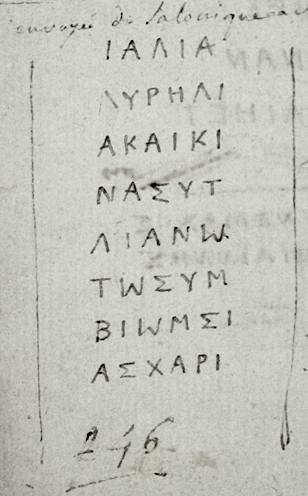 envoyée de Salonique
ΙΑΛΙΑ
ΛΥΡΗΛΙ
ΑΚΑΙΚΙ
ΝΑΣΥΤ
ΛΙΑΝΩ
ΤΩΣΥΜ
ΒΙΩΜΣΙ
ΑΣΧΑΡΙ
246